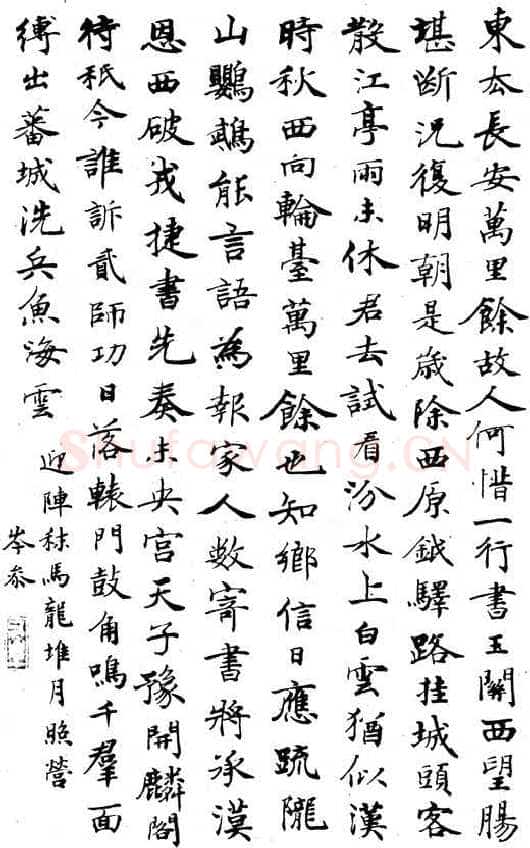 東去長安萬里餘故人何惜一行書玉關西望腸
堪断況復明朝是歲除西原鉞驛路挂城頭客
散江亭雨未休君去試看汾水上白雲猶似漢
時秋西向輪臺萬里餘也知鄉信日應疏隴
山鸚鵡能言語為報家人數寄書將承漠
恩西破戎捷書先奏未央宮天子豫開麟閣
待秖今誰訴貳師功日落轅門鼓角鳴千羣面
縛出蕃城洗兵魚海雲
迎陣秣馬龍堆月照營
岑參
Shufawang.CN